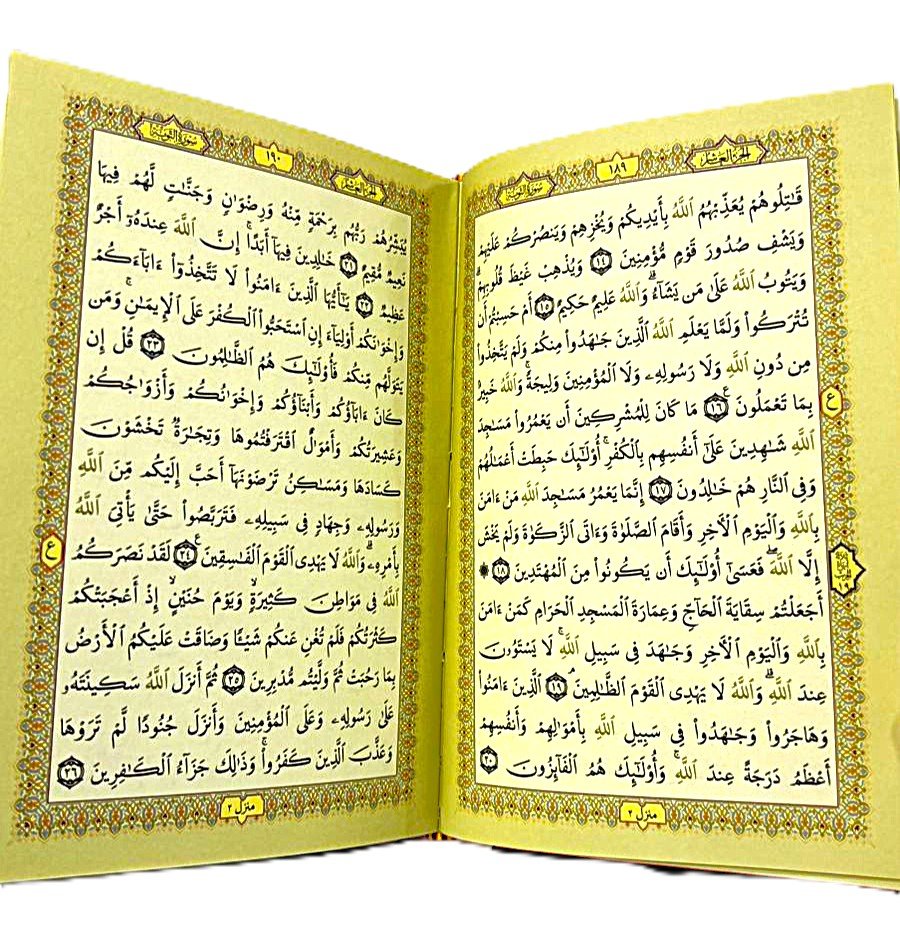 الجزء العشر
١٨٩
سورة التوبة
قَـٰتِلُوهُمْ يُعَذِّبْهُمُ ٱللَّهُ بِأَيْدِيكُمْ وَيُخْزِهِمْ وَيَنصُرْكُمْ عَلَيْهِمْ
وَيَشْفِ صُدُورَ قَوْمٍ مُّؤْمِنِينَ ١٤ وَيُذْهِبْ غَيْظَ قُلُوبِهِمْ ۗ
وَيَتُوبُ ٱللَّهُ عَلَىٰ مَن يَشَآءُ ۗ وَٱللَّهُ عَلِيمٌ حَكِيمٌ ١٥ أَمْ حَسِبْتُمْ أَن
تُتْرَكُوا۟ وَلَمَّا يَعْلَمِ ٱللَّهُ ٱلَّذِينَ جَـٰهَدُوا۟ مِنكُمْ وَلَمْ يَتَّخِذُوا۟
مِن دُونِ ٱللَّهِ وَلَا رَسُولِهِۦ وَلَا ٱلْمُؤْمِنِينَ وَلِيجَةً ۚ وَٱللَّهُ خَبِيرٌۢ
بِمَا تَعْمَلُونَ ١٦ مَا كَانَ لِلْمُشْرِكِينَ أَن يَعْمُرُوا۟ مَسَـٰجِدَ
ٱللَّهِ شَـٰهِدِينَ عَلَىٰٓ أَنفُسِهِم بِٱلْكُفْرِ ۚ أُو۟لَـٰٓئِكَ حَبِطَتْ أَعْمَـٰلُهُمْ
وَفِى ٱلنَّارِ هُمْ خَـٰلِدُونَ ١٧ إِنَّمَا يَعْمُرُ مَسَـٰجِدَ ٱللَّهِ مَنْ ءَامَنَ
بِٱللَّهِ وَٱلْيَوْمِ ٱلْـَٔاخِرِ وَأَقَامَ ٱلصَّلَوٰةَ وَءَاتَى ٱلزَّكَوٰةَ وَلَمْ يَخْشَ
إِلَّا ٱللَّهَ ۖ فَعَسَىٰٓ أُو۟لَـٰٓئِكَ أَن يَكُونُوا۟ مِنَ ٱلْمُهْتَدِينَ ١٨ ۞
أَجَعَلْتُمْ سِقَايَةَ ٱلْحَآجِّ وَعِمَارَةَ ٱلْمَسْجِدِ ٱلْحَرَامِ كَمَنْ ءَامَنَ
بِٱللَّهِ وَٱلْيَوْمِ ٱلْـَٔاخِرِ وَجَـٰهَدَ فِى سَبِيلِ ٱللَّهِ ۚ لَا يَسْتَوُۥنَ
عِندَ ٱللَّهِ ۗ وَٱللَّهُ لَا يَهْدِى ٱلْقَوْمَ ٱلظَّـٰلِمِينَ ١٩ ٱلَّذِينَ ءَامَنُوا۟
وَهَاجَرُوا۟ وَجَـٰهَدُوا۟ فِى سَبِيلِ ٱللَّهِ بِأَمْوَٰلِهِمْ وَأَنفُسِهِمْ
أَعْظَمُ دَرَجَةً عِندَ ٱللَّهِ ۚ وَأُو۟لَـٰٓئِكَ هُمُ ٱلْفَآئِزُونَ ٢٠
ع
منزل ٢
الجزء العشر
١٩٠
سورة التوبة
يُبَشِّرُهُمْ رَبُّهُم بِرَحْمَةٍ مِّنْهُ وَرِضْوَٰنٍ وَجَنَّـٰتٍ لَّهُمْ فِيهَا
نَعِيمٌ مُّقِيمٌ ٢١ خَـٰلِدِينَ فِيهَآ أَبَدًا ۚ إِنَّ ٱللَّهَ عِندَهُۥٓ أَجْرٌ
عَظِيمٌ ٢٢ يَـٰٓأَيُّهَا ٱلَّذِينَ ءَامَنُوا۟ لَا تَتَّخِذُوٓا۟ ءَابَآءَكُمْ
وَإِخْوَٰنَكُمْ أَوْلِيَآءَ إِنِ ٱسْتَحَبُّوا۟ ٱلْكُفْرَ عَلَى ٱلْإِيمَـٰنِ ۚ وَمَن
يَتَوَلَّهُم مِّنكُمْ فَأُو۟لَـٰٓئِكَ هُمُ ٱلظَّـٰلِمُونَ ٢٣ قُلْ إِن
كَانَ ءَابَآؤُكُمْ وَأَبْنَآؤُكُمْ وَإِخْوَٰنُكُمْ وَأَزْوَٰجُكُمْ
وَعَشِيرَتُكُمْ وَأَمْوَٰلٌ ٱقْتَرَفْتُمُوهَا وَتِجَـٰرَةٌ تَخْشَوْنَ
كَسَادَهَا وَمَسَـٰكِنُ تَرْضَوْنَهَآ أَحَبَّ إِلَيْكُم مِّنَ ٱللَّهِ
وَرَسُولِهِۦ وَجِهَادٍ فِى سَبِيلِهِۦ فَتَرَبَّصُوا۟ حَتَّىٰ يَأْتِىَ ٱللَّهُ
بِأَمْرِهِۦ ۗ وَٱللَّهُ لَا يَهْدِى ٱلْقَوْمَ ٱلْفَـٰسِقِينَ ٢٤ لَقَدْ نَصَرَكُمُ
ٱللَّهُ فِى مَوَاطِنَ كَثِيرَةٍ ۙ وَيَوْمَ حُنَيْنٍ ۙ إِذْ أَعْجَبَتْكُمْ
كَثْرَتُكُمْ فَلَمْ تُغْنِ عَنكُمْ شَيْـًٔا وَضَاقَتْ عَلَيْكُمُ ٱلْأَرْضُ
بِمَا رَحُبَتْ ثُمَّ وَلَّيْتُم مُّدْبِرِينَ ٢٥ ثُمَّ أَنزَلَ ٱللَّهُ سَكِينَتَهُۥ
عَلَىٰ رَسُولِهِۦ وَعَلَى ٱلْمُؤْمِنِينَ وَأَنزَلَ جُنُودًا لَّمْ تَرَوْهَا
وَعَذَّبَ ٱلَّذِينَ كَفَرُوا۟ ۚ وَذَٰلِكَ جَزَآءُ ٱلْكَـٰفِرِينَ ٢٦
ع
منزل ٢